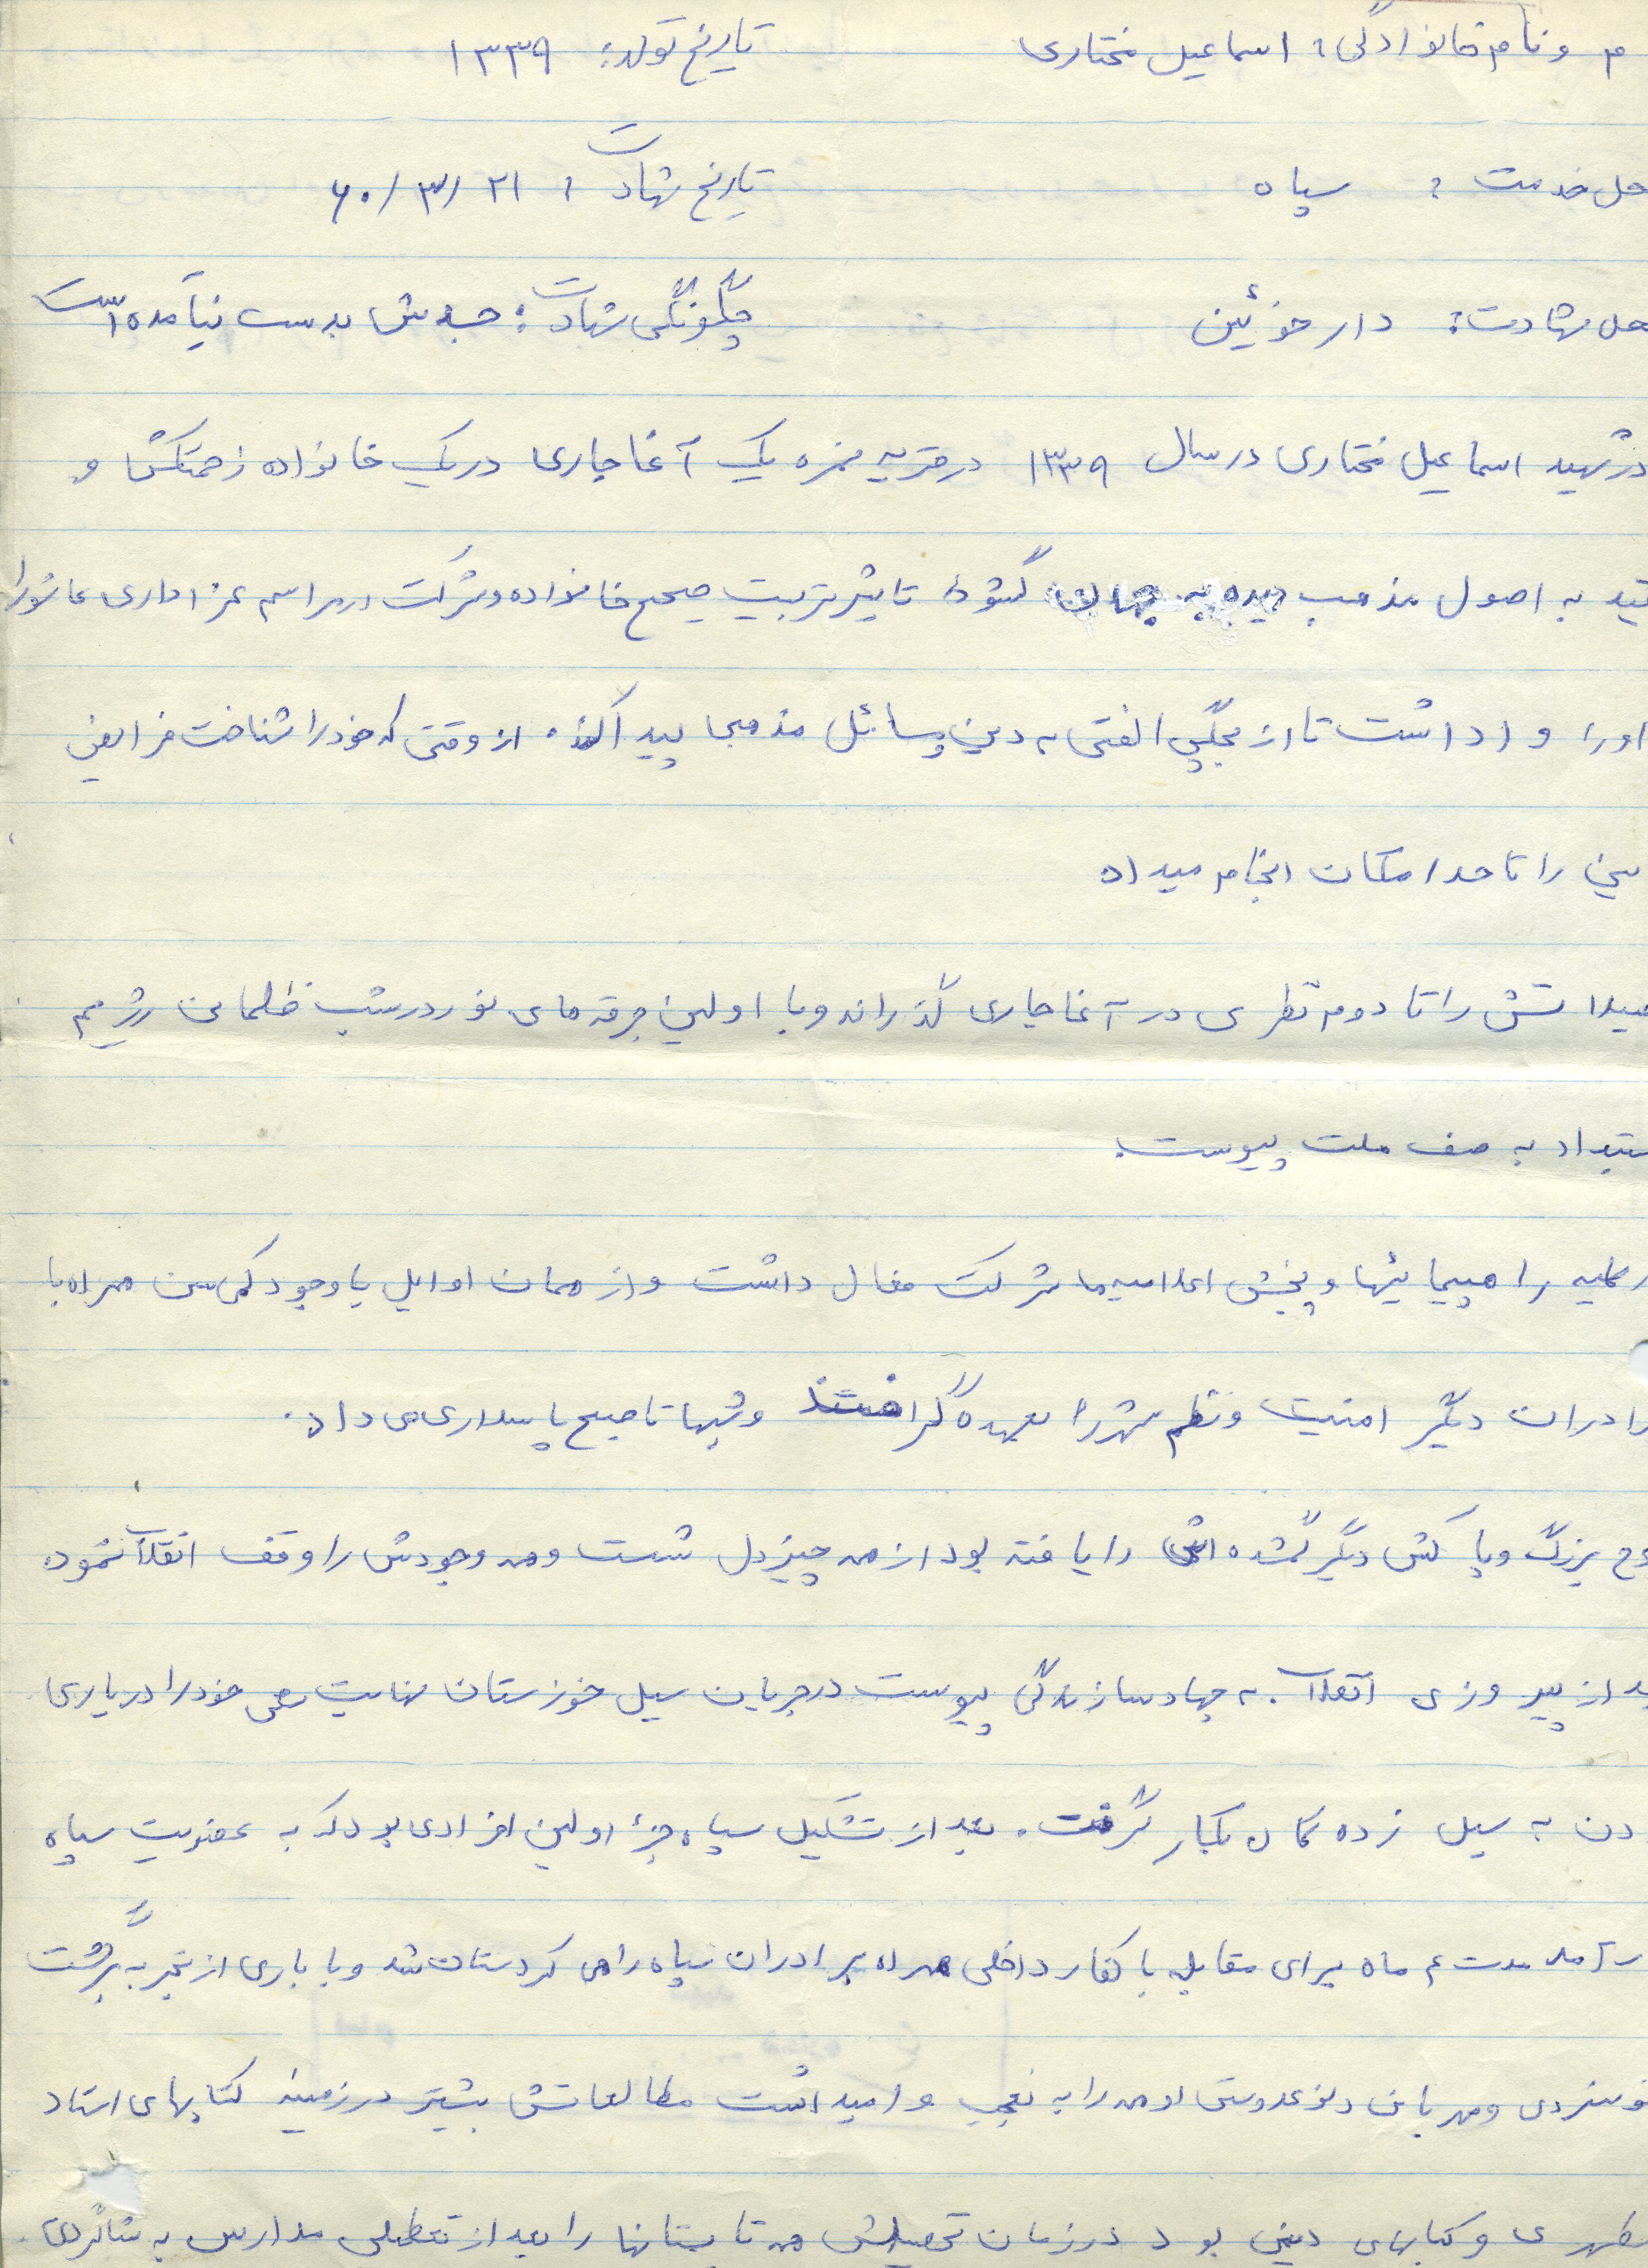 م و نام خانوادگی: اسماعیل مختاری تاریخ تولد: ۱۳۳۹
حل خدمت: سپاه تاریخ شهادت: ۶۰/۳/۲۱
حل شهادت: دارخوئین چگونگی شهادت: جسدش بدست نیآمده است
شهید اسماعیل مختاری در سال ۱۳۳۹ در قریه نمره یک آغاجاری در یک خانواده زحمتکش و
به اصول مذهب دیده به جهان گشود تاثیر تربیت صحیح خانواده و شرکت در مراسم عزاداری عاشورا
اورا واداشت تا از بچگی الفتی به دین و مسائل مذهبی پیدا کند. از وقتی که خود را شناخت فرایض
را تا حد امکان انجام میداد
تش را تا دوم نظری در آغاجاری گذراند و با اولین جرقه های نور در شب ظلمانی رژیم
ستبداد به صف ملت پیوست.
کلیه راهپیمائیها و پخش اعلامیه ها شرکت فعال داشت و از همان اوایل با وجود کمی سن همراه با
رادران دیگر امنیت و نظم شهر را بعهده گرفتند و شبها تا صبح پاسداری می داد.
وح بزرگ و پاکش دیگر گمشده اش را یافته بود از همه چیز دل شست و همه وجودش را وقف انقلاب نمود
د از پیروزی انقلاب به جهاد سازندگی پیوست در جریان سیل خوزستان نهایت سعی خود را در یاری
دن به سیل زده گان بکار گرفت. بعد از تشکیل سپاه جزء اولین افرادی بود که به عضویت سپاه
رآمد مدت ۴ ماه برای مقابله با کفار داخلی همراه برادران سپاه راهی کردستان شد و با باری از تجربه برگشت
ونسردی و مهربانی و نوعدوستی او همه را به تعجب وامیداشت مطالعاتش بیشتر در زمینه کتابهای استاد
طهری و کتابهای دینی بود در زمان تحصیلش همه تابستانها را بعد از تعطیلی مدارس به شاگردی